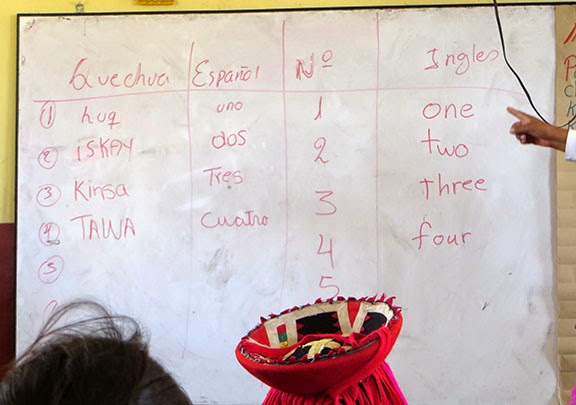 Quechua Español Nº Ingles
① huq uno 1 one
② ISKAY dos 2 two
③ Kinsa Tres 3 three
④ TAWA Cuatro 4 four
⑤ 5